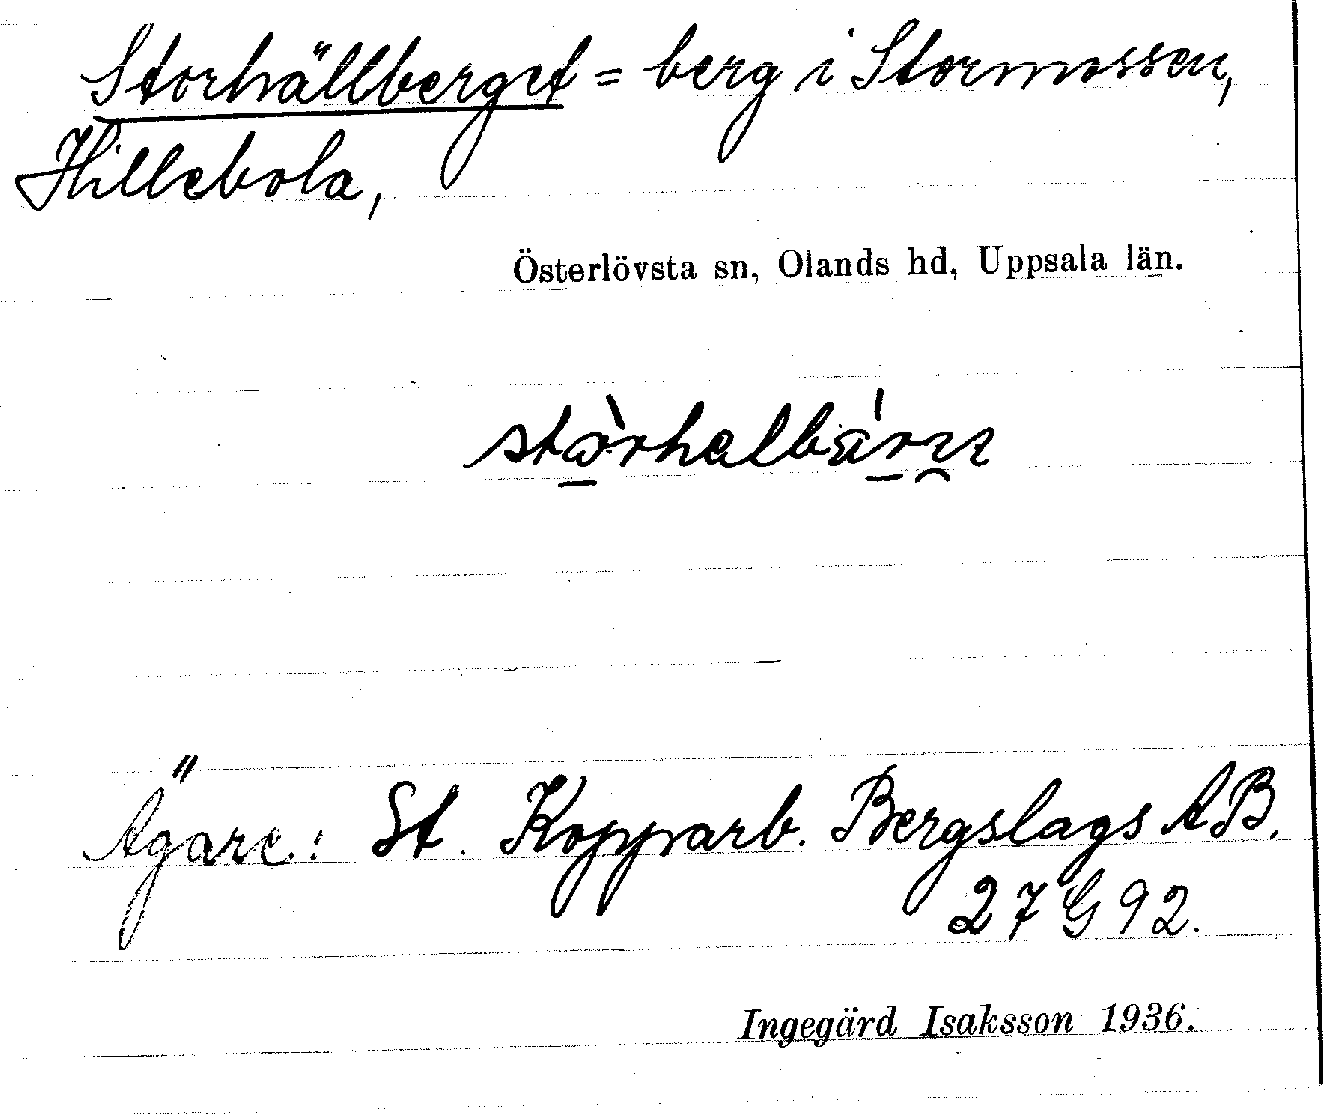 Storhällberget = berg i Stormossen,
Hillebola,
Österlövsta sn, Olands hd, Uppsala län.
Ägare: St. Kopparb. Bergslags AB.
27 G 92.
Ingegärd Isaksson 1936.